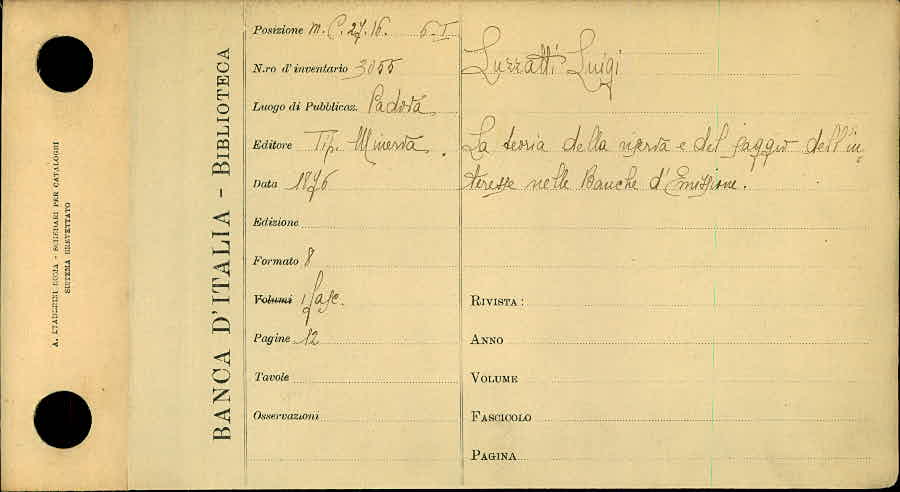 A. STADERINI ROMA - SCHEDARI PER CATALOGHI
SISTEMA BREVETTATO
BANCA D'ITALIA - BIBLIOTECA
Posizione M. C. 27. 16. 6-I
N.ro d'inventario 3055
Luogo di Pubblicaz. Padova
Editore Tip. Minerva.
Data 1876
Edizione
Formato 8
Volumi 1 fasc.
Pagine 12
Tavole
Osservazioni
Luzzatti Luigi
La teoria della riserva e del saggio dell'in=
teresse nelle Banche d'Emissione.
RIVISTA:
ANNO
VOLUME
FASCICOLO
PAGINA